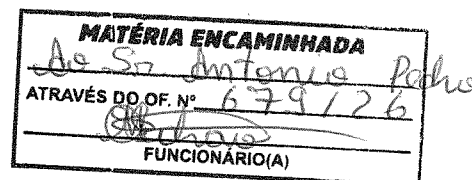 MATÉRIA ENCAMINHADA
Ao Sr Antonio Pedro
ATRAVÉS DO OF. Nº 679/26
FUNCIONÁRIO(A)